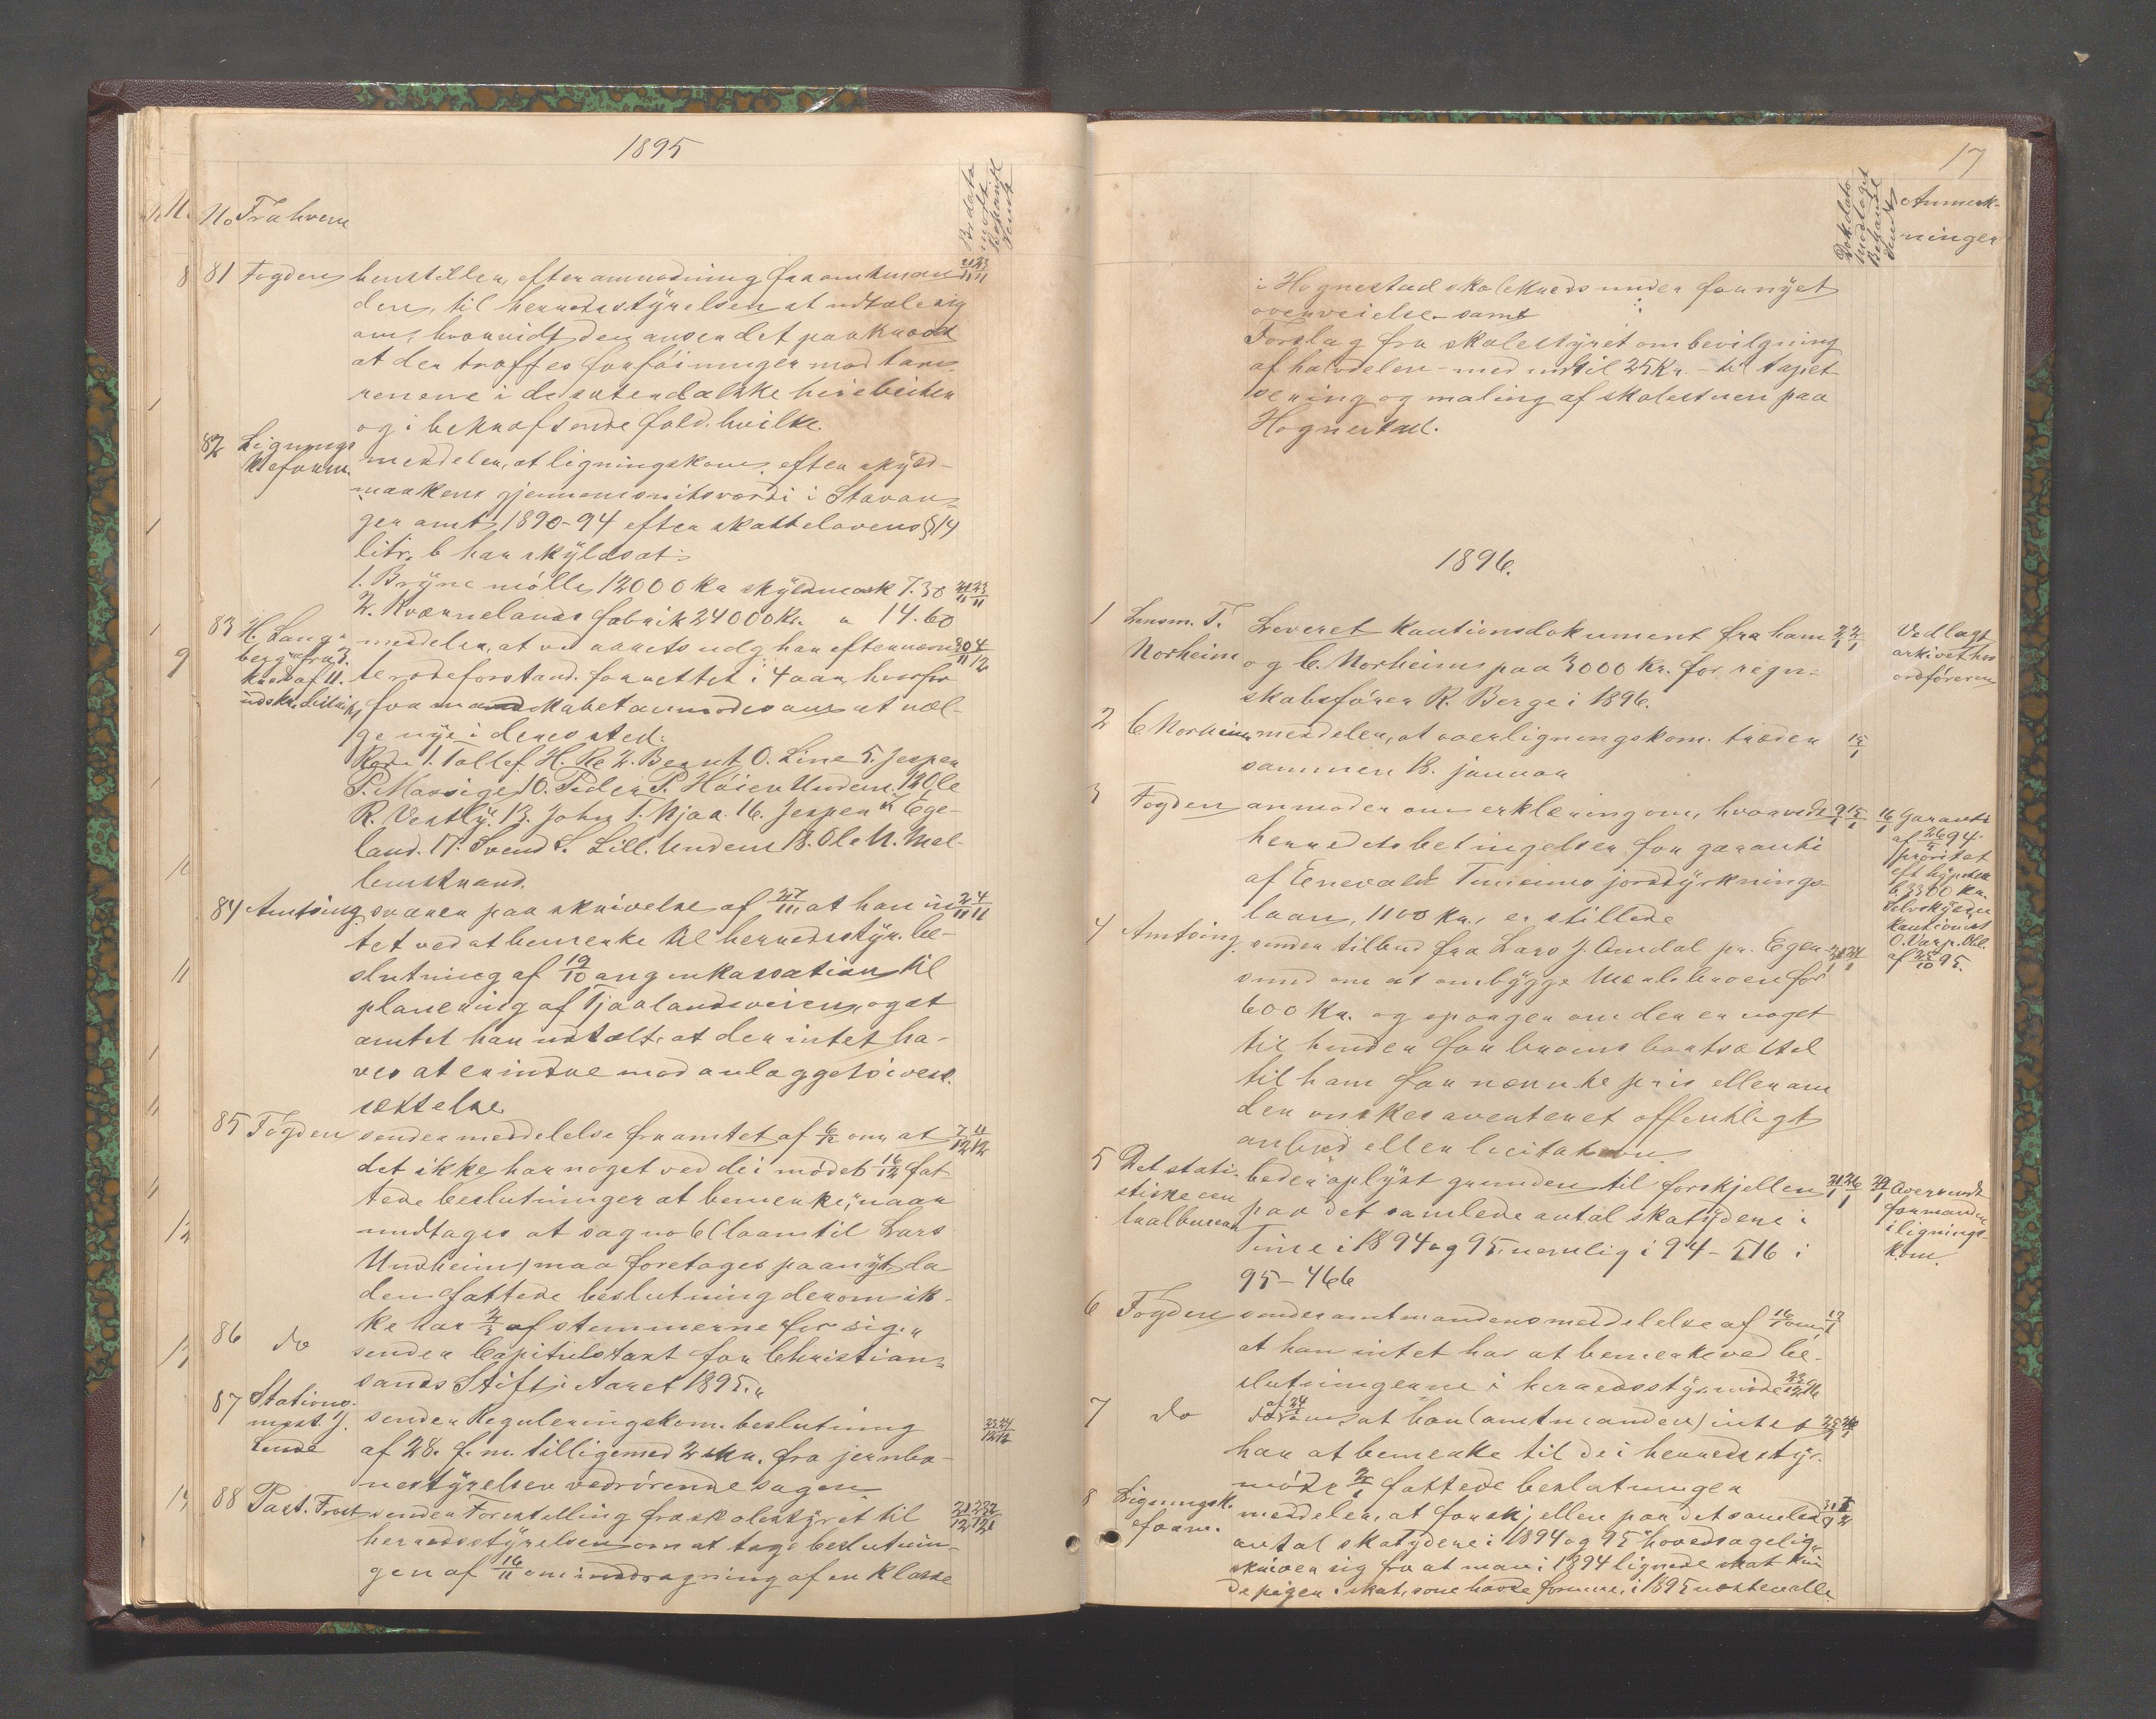 1895
No Fra hvem
81 Fogden henstiller, efter anmodning fra amtman 21/11 23/11
den, til herredsstyrelsen at udtale sig
om, hvorvidt den anser det paakrævet
at der træffes forføininger mod
renene i de
og i bekræftende fald. hvilke.
82 Lignings
k. form. meddeler, at ligningskom. efter skyld-
markens gjennemsnitsværdi i Stavan-
ger amt 1890-94 efter skattelovens § 14
litr. b har skyldsat:
1. Bryne mølle 12000 Kr skyldmark 7.30 21/11 23/11
2. Kvernelands fabrik 24000 Kr. " 14.60
83 H. Lang- meddeler, at ved aarets udg. har efternævn- 30/11 4/12
te rodeforstand. forrettet i 4 aar, hvorfor
formandskabet anmodes om at væl-
ge nye i deres sted:
Rode 1. Tollef H. Re 2. Bernt O. Line 5. Jesper
P. Mossige 10. Peder P. Høien Undem. 12 Ole
R. Vestly. 13. John T. Njaa. 16. Jesper K Ege-
land. 17. Svend S. Lill. Undem 18. Ole N. Mel-
lemstrand.
84 Amtsing. svarer paa skrivelse af 27/11, at han in
tet ved at bemerke til herredsstyr. be-
slutning af 19/10 ang. en kassation til
planering af Tjaalandsveien, og at
amtet har udtalt, at der intet ha-
ves at erindre mod anlægget iverk-
sættelse.
85 Fogden sender meddelelse fra amtet af 6/12 om at 7/12 11/12
det ikke har noget ved de i mødet 16/12 fat-
tede beslutninger at bemerke, naar
undtages at sag no 6 (laan til Lars
Undheim) maa foretages paanyt da
den fattede beslutning derom ik-
ke har 2/3 af stemmerne for sig. "
86 do sender Capitulstaxt for Christian-
sands Stift i Aaret 1895. "
87 Stations-
mest. J.
Lende
sender Reguleringskom. beslutning 23/12 24/12
af 28. f. m. tilligemed 2 skr. fra jernba-
nestyrelsen vedrørende sagen
88 Past. Frost sender Forestilling fra skolestyret til
herredsstyrelsen om at tage beslutnin-
gen af 16/11 om inddragning af en klasse
17
Dok. dato
modtaget
Behandlet
Sendt
Anmerk-
ninger
i Hognestad skolekreds under fornyet
overveielse samt
Forslag fra skolestyret om bevilgning
af halvdelen - med indtil 25 Kr. - til tapet-
sering og maling af skolestuen paa
Hognestad.
1896.
1 Lensm. T.
Norheim
Leveret Kautionsdokument fra ham 2/1 2/1
og C. Norheim paa 3000 Kr. for regn-
skabsfører R. Berge i 1896.
Vedlagt
arkivet hos
ordføreren
2 C Norheim meddeler, at overligningskom. træder 15/1
sammen 18. januar
3 Fogden anmoder om erklæring om, hvorvidt 9/1 15/1
herredets betingelser for garanti
af Enevald Tunheims jorddyrknings-
laan, 1100 Kr., er stillede
16/1 Garanti
af 26/5 94.
prioritet
eft hypothek
6,3300 Kr.
Selvskyldn
Kautionist
O. Varp. Obl.
af 25/10 95.
4 Amtsing. sender tilbud fra Lars J. Omdal pr. Eger- 21/1 24/1
sund om at ombygge broen for
600 Kr. og spørger om der er noget
til hinder for broens bortsættel
til ham for nævnte pris eller om
der ønskes averteret offentligt
anbud eller licitation
5 Det stati-
stiske cen
tralbureau
beder oplyst grunden til forskjellen 21/1 26/1
paa det samlede antal skatydere i
Time i 1894 og 95, nemlig i 94 - 516 i
95 - 466
29/1 Oversendt
formanden
i lignings-
kom.
6 Fogden sender amtmandens meddelelse af 16/1 om 19/1
at han intet har at bemerke ved be-
slutningerne i herredsstyr. møde 23/12 96
7 do do af 24/1 om, at han (amtmanden) intet 25/1 28/1
har at bemerke til de i herredsstyr.
møde 2/1 fattede beslutninger
8 Ligningsk.
form.
meddeler, at forskjellen paa det samlede
antal skatydere i 1894 og 95 hovedsagelig
skriver sig fra at man i 1894 lignede skat
piger i skat, som havde formue, i 1895 næsten alle